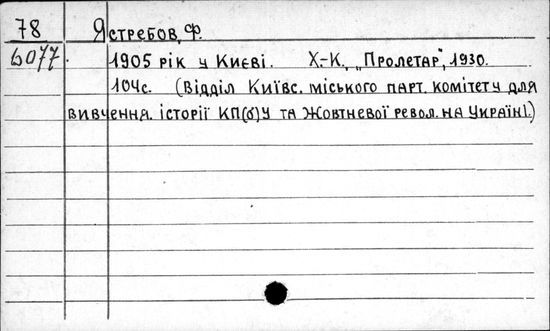 78 Ястребов, Ф.
6077 1905 рік у Києві. Х.-К., „Пролетар", 1930.
104 с. (Відділ Київс. міського парт. комітету для
вивчення історії КП(б)У та Жовтневої револ. на Україні.)